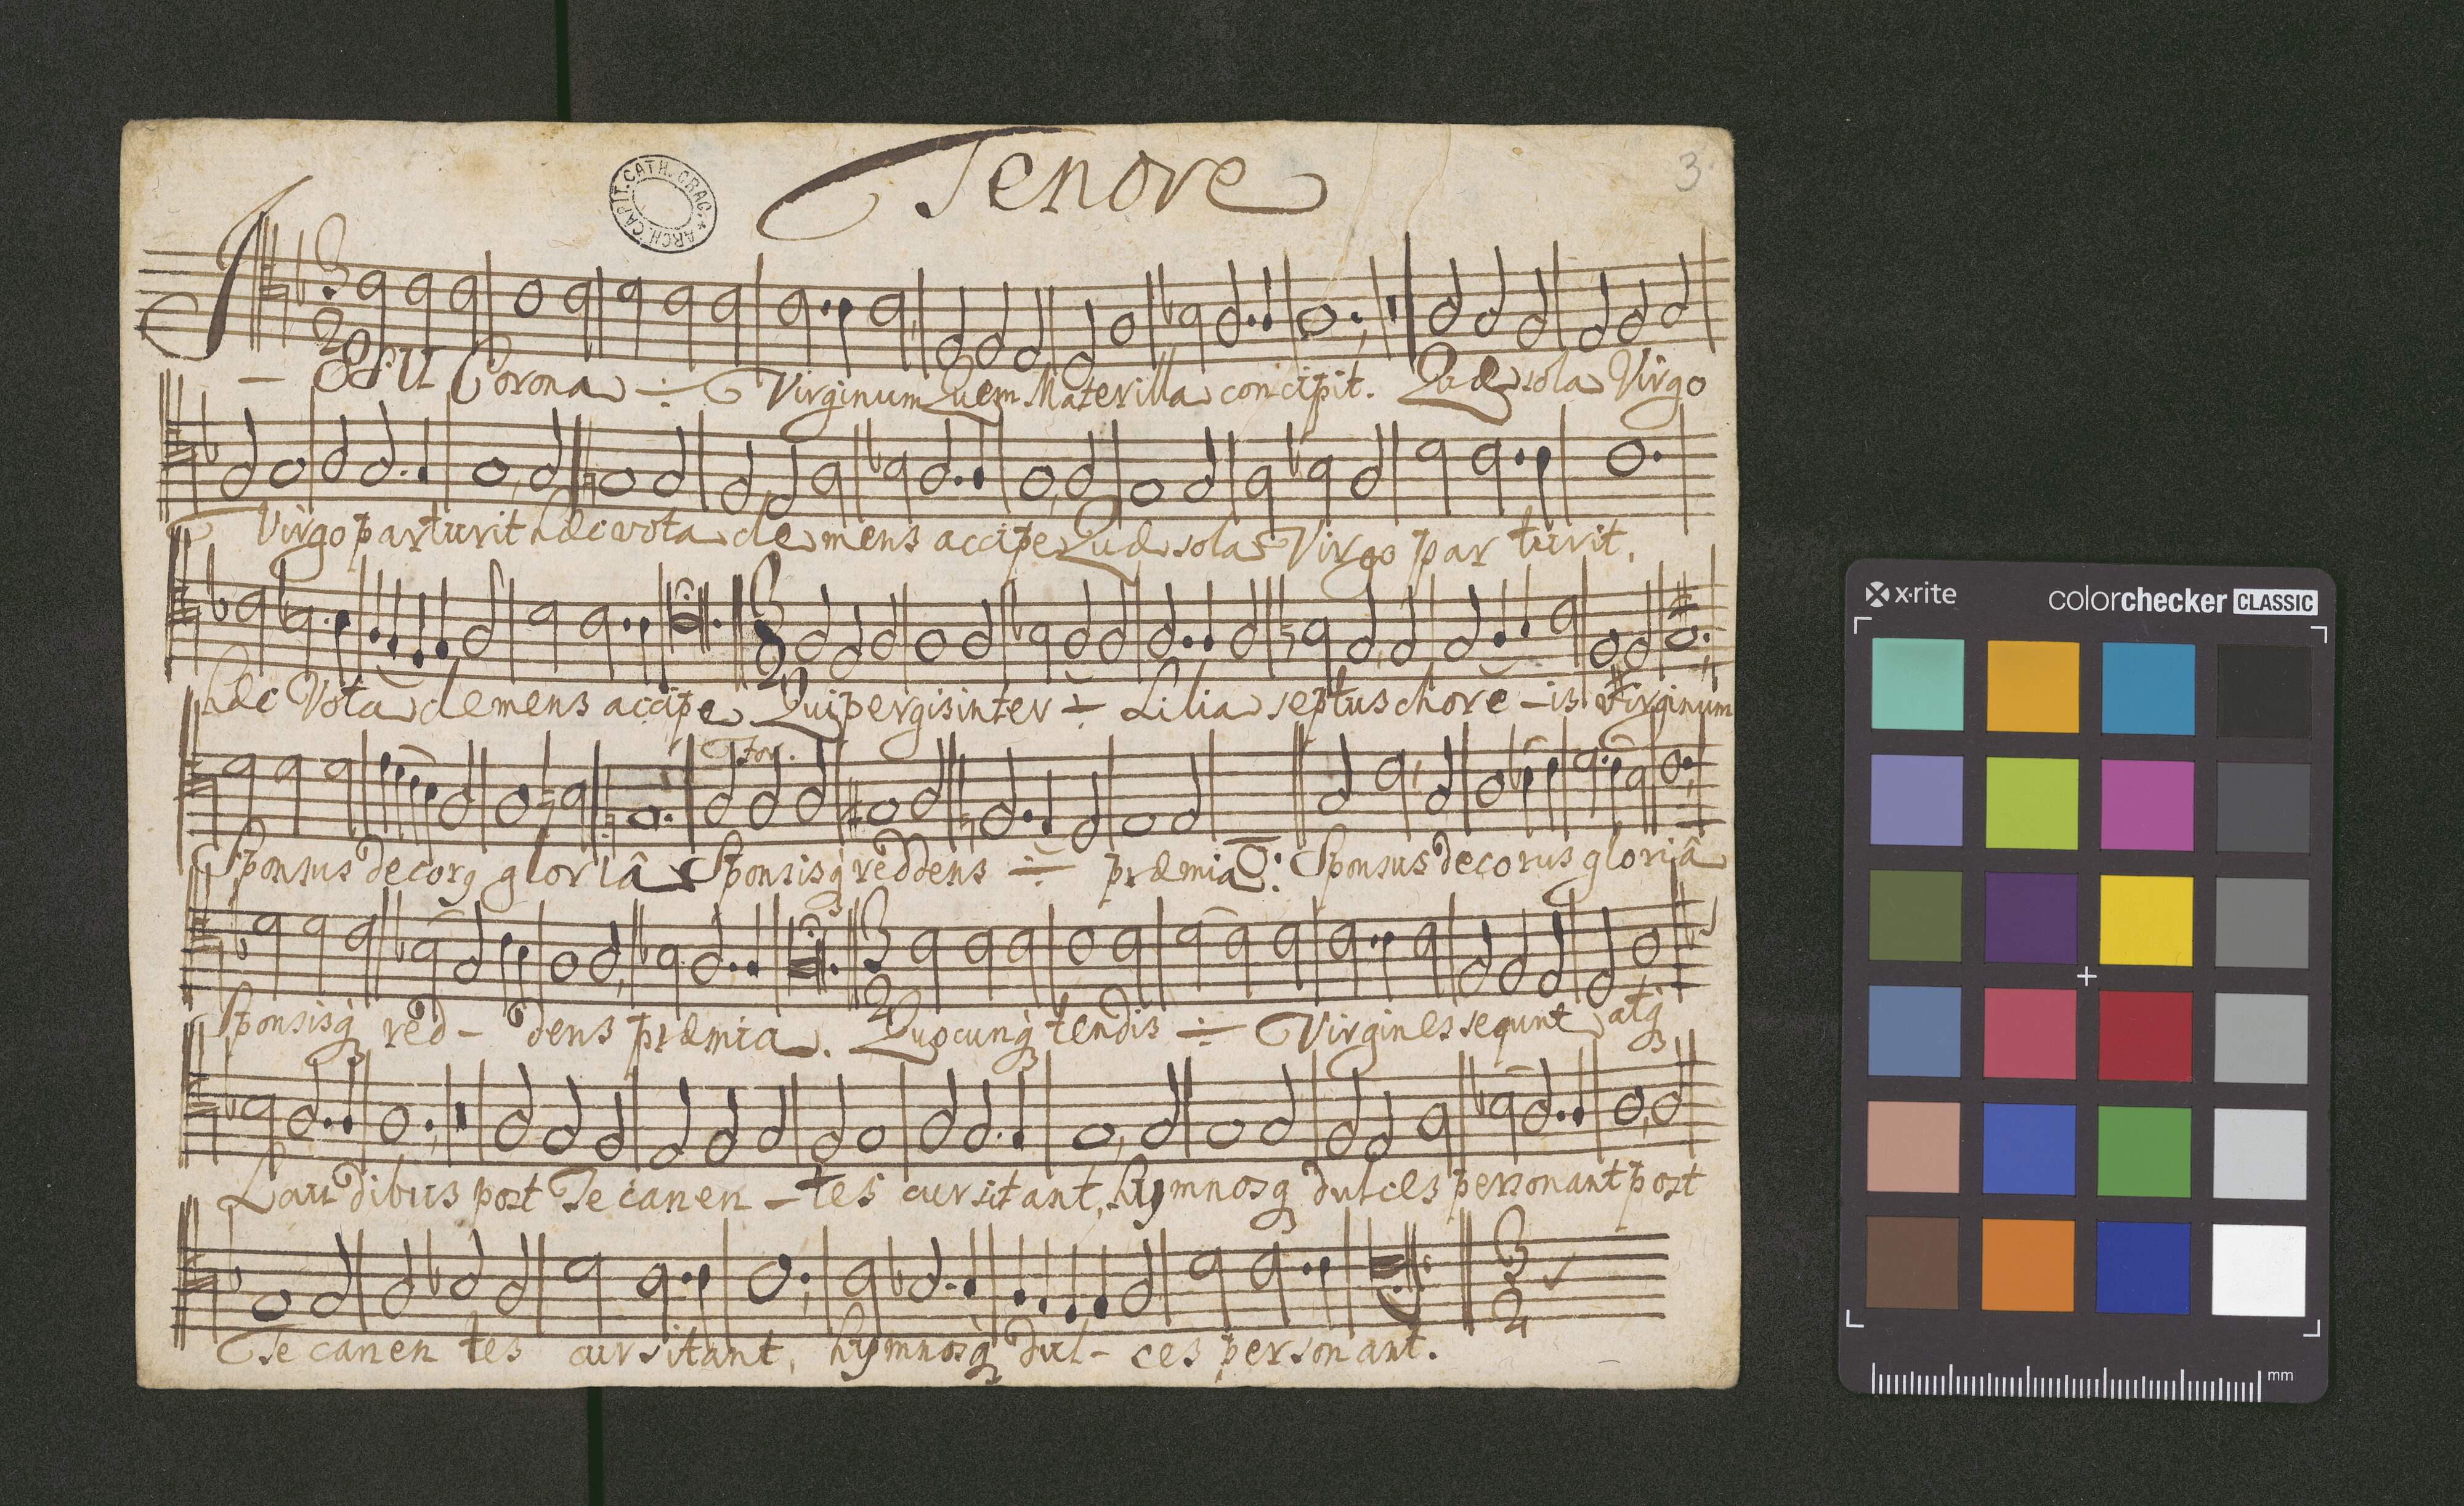 Tenore
3
ARCH. CAPIT. CATH. CRAC.
3
2
JESU Corona ÷ Virginum Quem Mater illa concipit. Quæ sola Virgo
Virgo parturit hæc vota clemens accipe Quæ sola Virgo parturit,
3
2
hæc Vota clemens accipe Qui pergis inter ÷ Lilia septus chore-is Virginum
For.
Sponsus decorꝯ gloriâ Sponsisq̀ reddens ÷ præmia Sponsus decorus gloriâ
3
2
Sponsisq̀ red- dens præmia. Quocunq̀ tendis ÷ Virgines sequnt atq̀
Laudibus post Te canen-tes cursitant, hymnosq̀ dulces personant post
3
2
Te canentes cursitant, hymnosq̀ dul- ces personant.
x·rite
colorchecker CLASSIC
mm